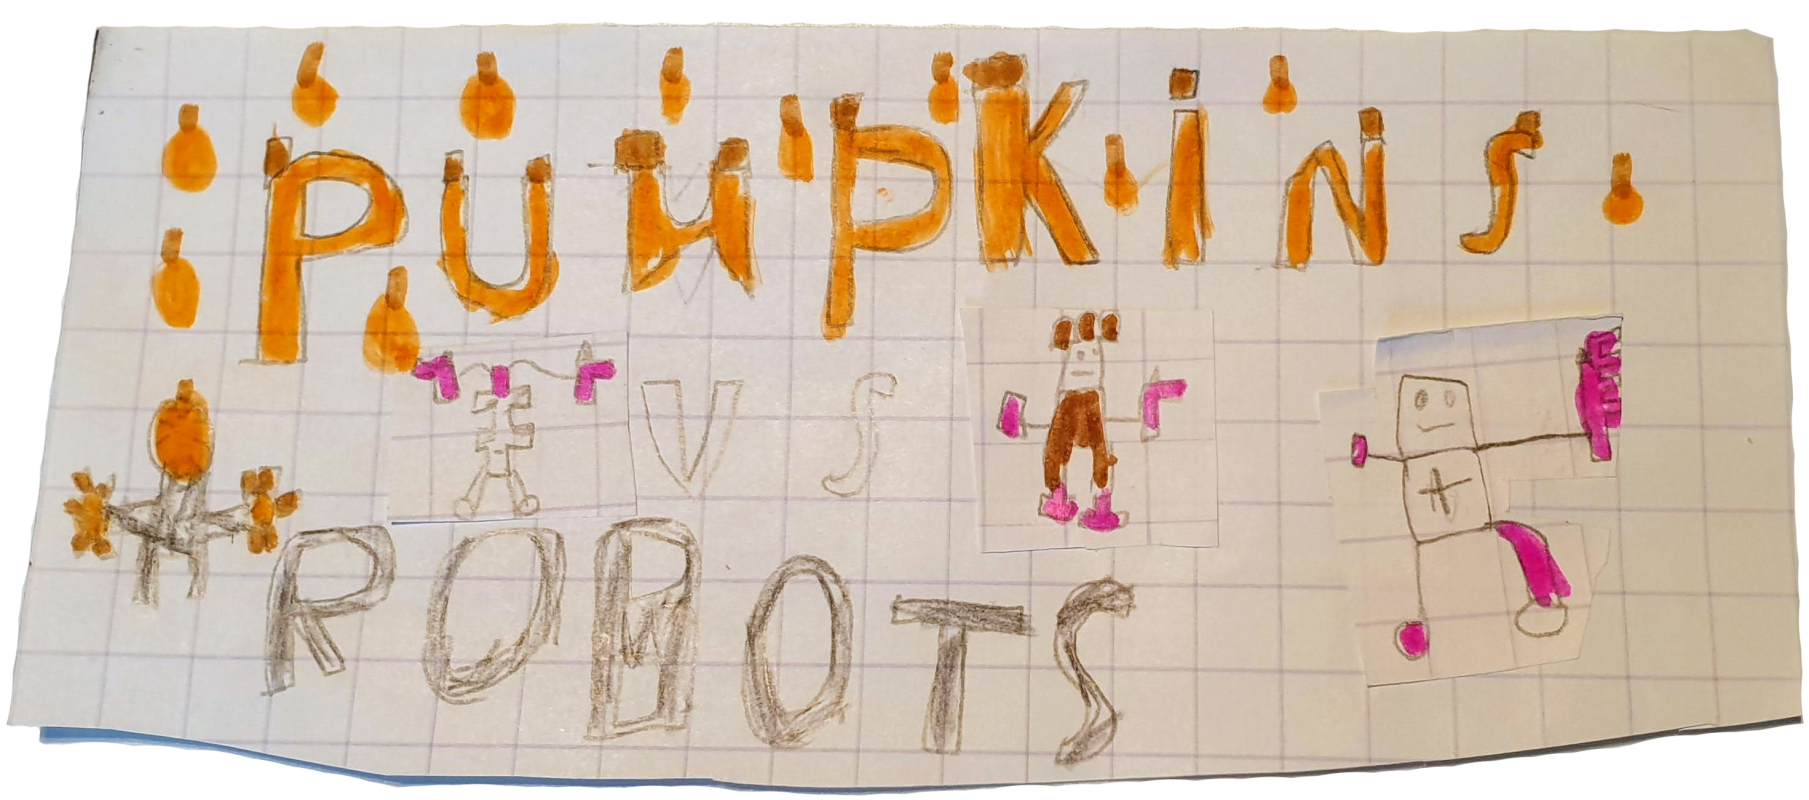 PUMPKiNS
VS
ROBOTS